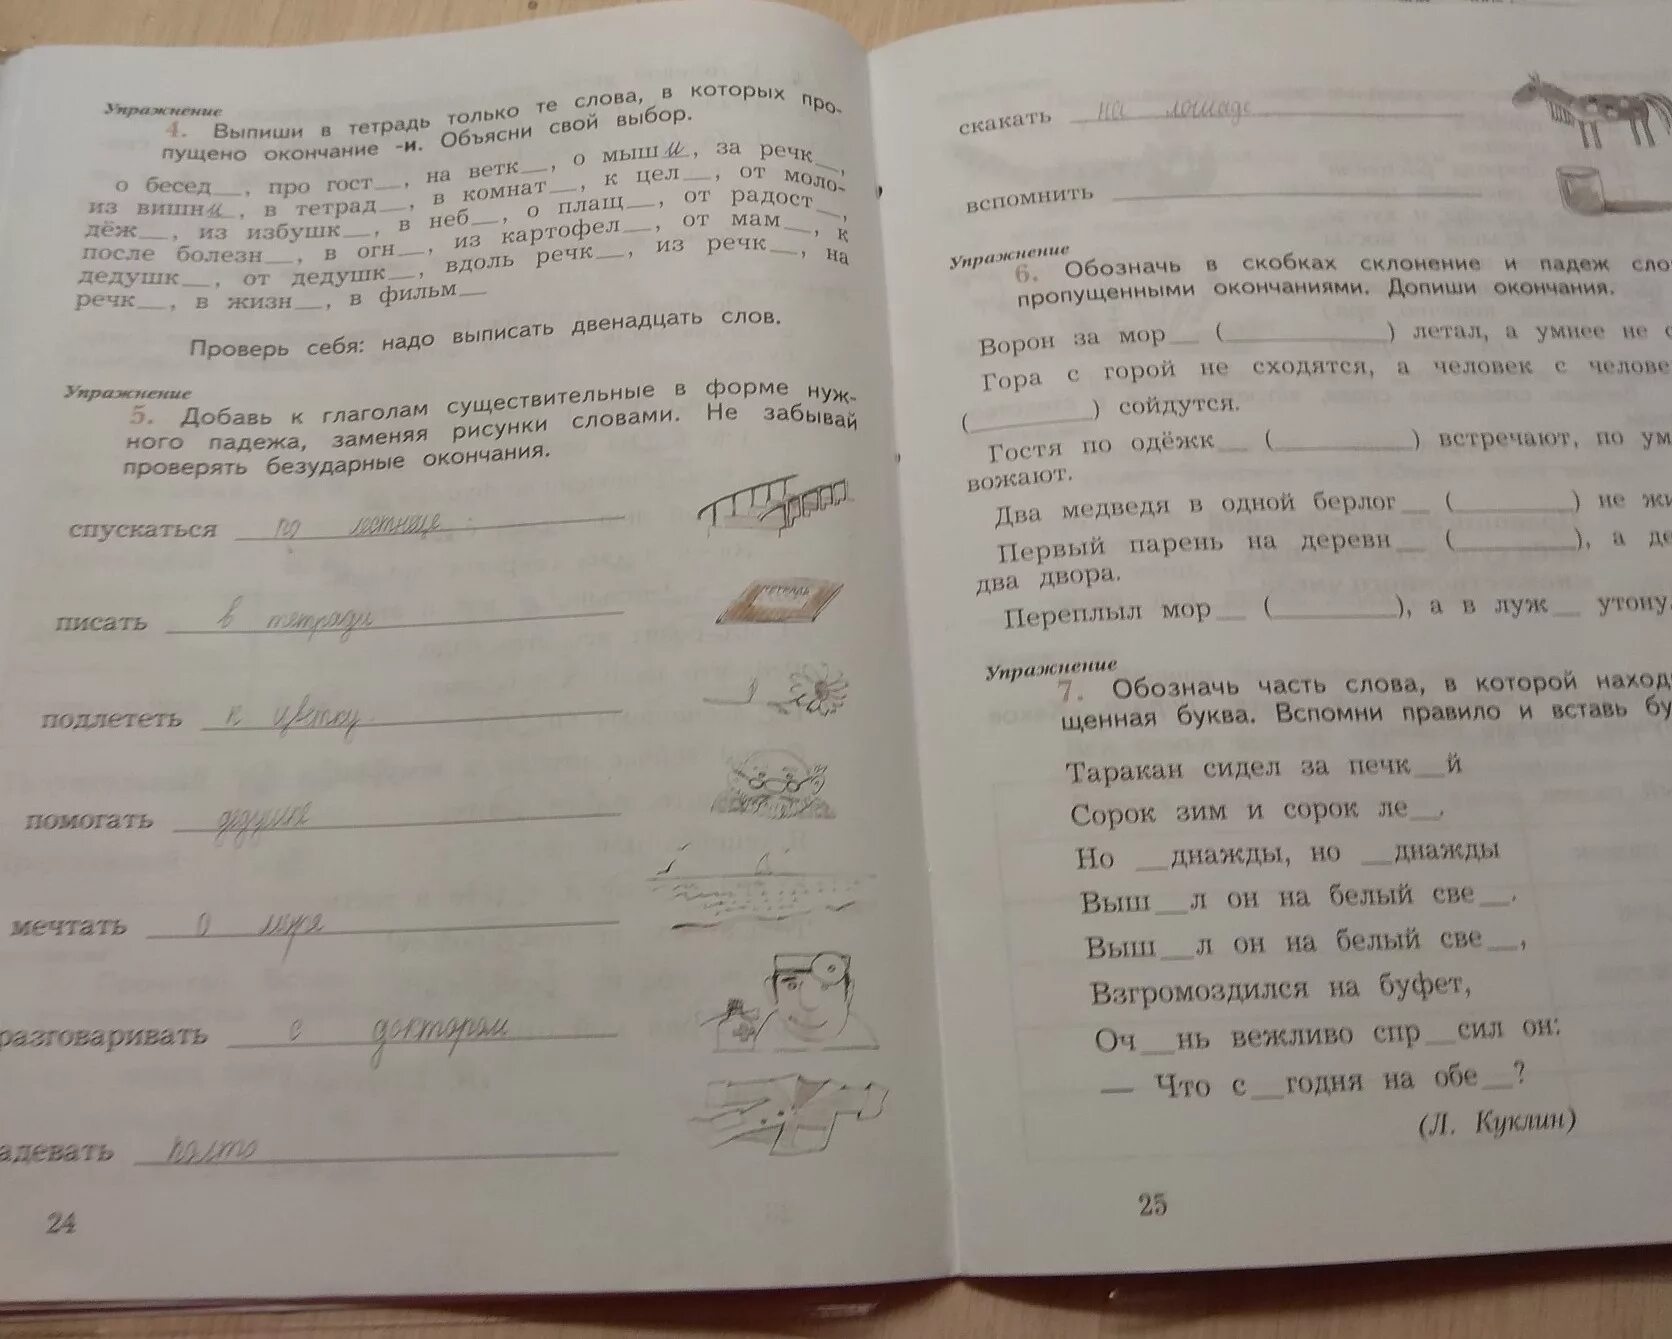 Упражнение
4. Выпиши в тетрадь только те слова, в которых про-
пущено окончание -и. Объясни свой выбор.
о бесед__, про гост__, на ветк__, о мыши, за речк__,
из вишни, в тетрад__, в комнат__, к цел__, от моло-
дёж__, из избушк__, в неб__, о плащ__, от радост__,
после болезн__, в огн__, из картофел__, от мам__, к
дедушк__, от дедушк__, вдоль речк__, из речк__, на
речк__, в жизн__, в фильм__
Проверь себя: надо выписать двенадцать слов.
Упражнение
5. Добавь к глаголам существительные в форме нуж-
ного падежа, заменяя рисунки словами. Не забывай
проверять безударные окончания.
спускаться по
писать в тетради
тетрадь
подлететь к цветку
помогать
мечтать о
разговаривать с доктором
адевать пальто
24
скакать на лошаде
вспомнить
Упражнение
6. Обозначь в скобках склонение и падеж сло
пропущенными окончаниями. Допиши окончания.
Ворон за мор__ (__) летал, а умнее не с
Гора с горой не сходятся, а человек с челове
(__) сойдутся.
Гостя по одёжк__ (__) встречают, по ум
вожают.
Два медведя в одной берлог__ (__) не жи
Первый парень на деревн__ (__), а де
два двора.
Переплыл мор__ (__), а в луж__ утону
Упражнение
7. Обозначь часть слова, в которой наход
щенная буква. Вспомни правило и вставь бу
Таракан сидел за печк__й
Сорок зим и сорок ле__.
Но __днажды, но __днажды
Выш__л он на белый све__.
Выш__л он на белый све__,
Взгромоздился на буфет,
Оч__нь вежливо спр__сил он:
— Что с__годня на обе__?
(Л. Куклин)
25